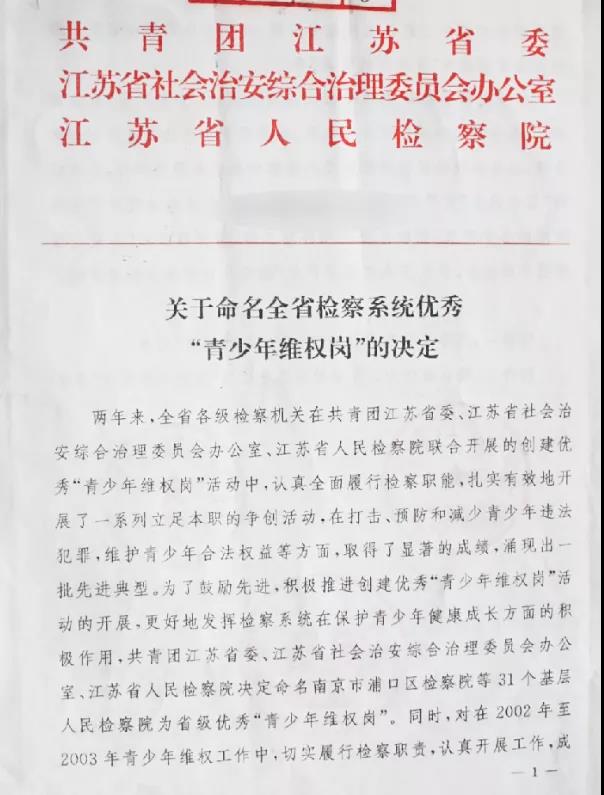 共青团江苏省委
江苏省社会治安综合治理委员会办公室
江苏省人民检察院
关于命名全省检察系统优秀
“青少年维权岗”的决定
两年来，全省各级检察机关在共青团江苏省委、江苏省社会治
安综合治理委员会办公室、江苏省人民检察院联合开展的创建优
秀“青少年维权岗”活动中，认真全面履行检察职能，扎实有效地开
展了一系列立足本职的争创活动，在打击、预防和减少青少年违法
犯罪，维护青少年合法权益等方面，取得了显著的成绩，涌现出一
批先进典型。为了鼓励先进，积极推进创建优秀“青少年维权岗”活
动的开展，更好地发挥检察系统在保护青少年健康成长方面的积
极作用，共青团江苏省委、江苏省社会治安综合治理委员会办公
室、江苏省人民检察院决定命名南京市浦口区检察院等31个基层
人民检察院为省级优秀“青少年维权岗”。同时，对在2002年至
2003年青少年维权工作中，切实履行检察职责，认真开展工作，成
—1—